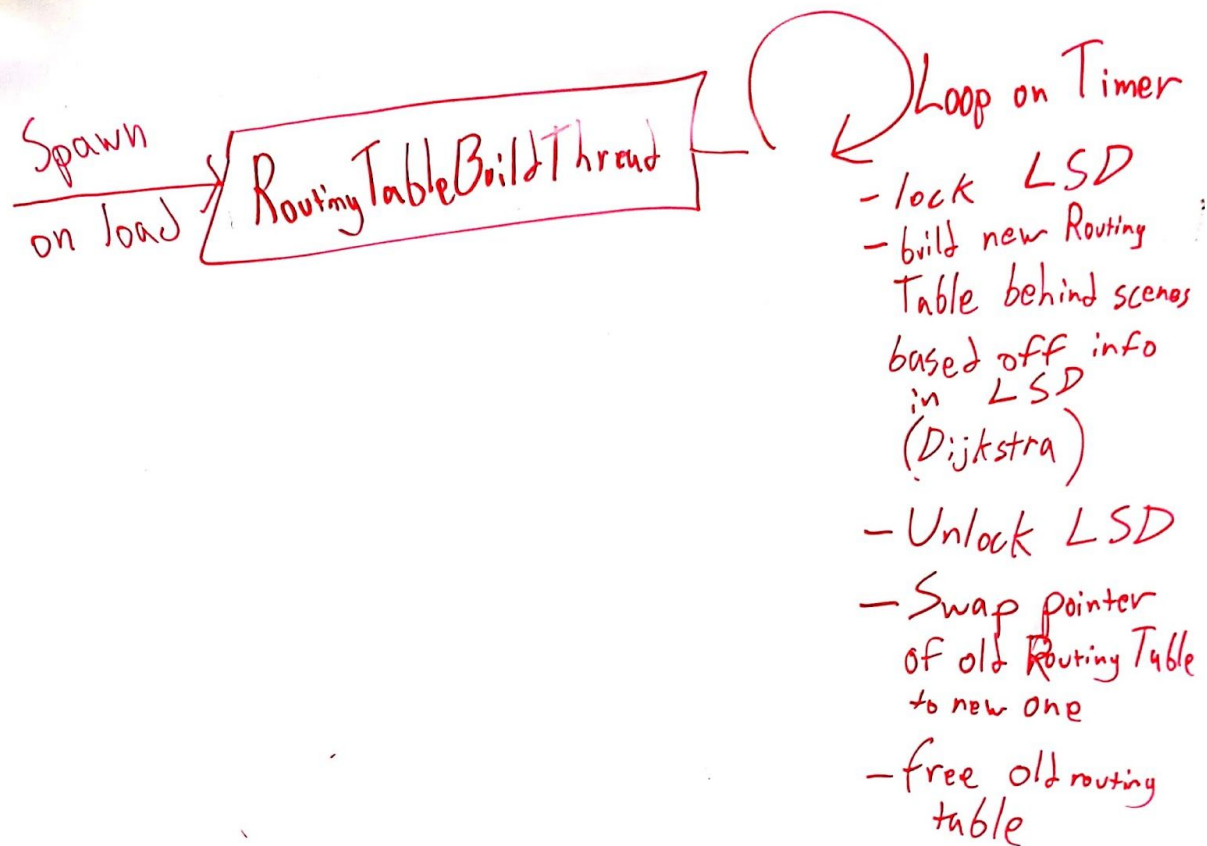 Spawn
on load
RoutingTableBuildThread
Loop on Timer
- lock LSD
- build new Routing
Table behind scenes
based off info
in LSD
(Dijkstra)
- Unlock LSD
- Swap pointer
of old Routing Table
to new one
- free old routing
table